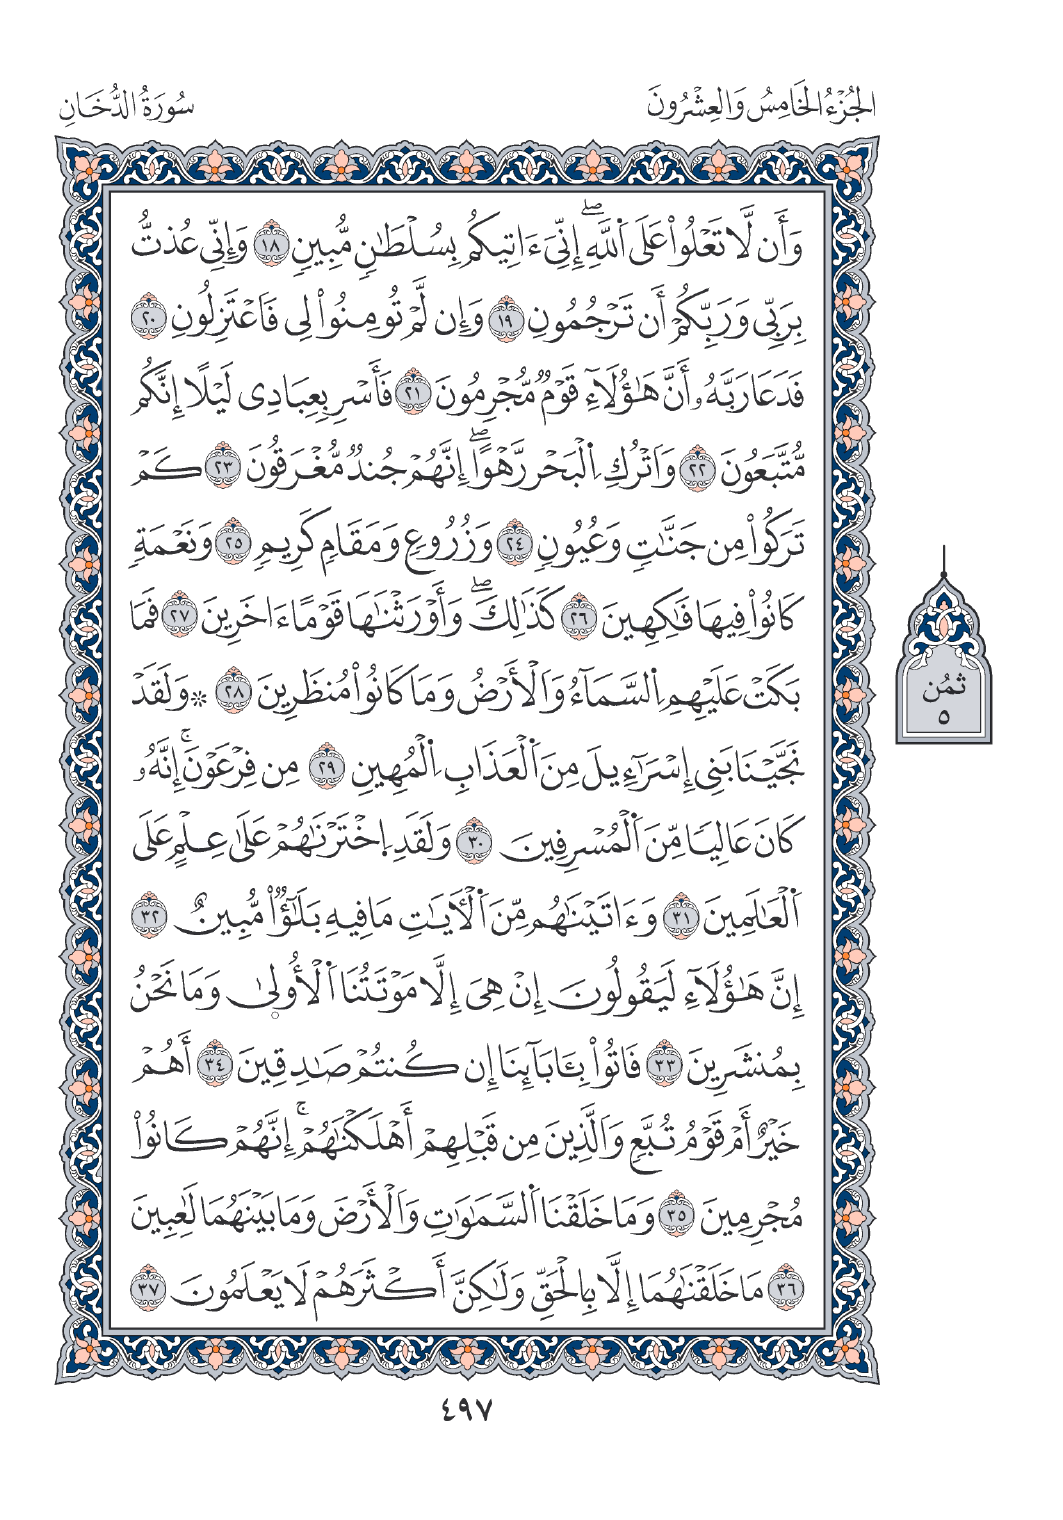 الجُزْءُ الخَامِسُ وَالعِشْرُونَ
سُورَةُ الدُّخَانِ
وَأَن لَّا تَعْلُواْ عَلَى اَ۬للَّهِۖ إِنِّيَ ءَاتِيكُم بِسُلْطَٰنٖ مُّبِينٖ ١٨ وَإِنِّي عُذتُّ
بِرَبِّي وَرَبِّكُمُ أَن تَرْجُمُونِ ١٩ وَإِن لَّمْ تُومِنُواْ لِي فَاعْتَزِلُونِ ٢٠
فَدَعَا رَبَّهُۥ أَنَّ هَٰؤُلَآءِ قَوْمٞ مُّجْرِمُونَ ٢١ فَأَسْرِ بِعِبَادِي لَيْلًا إِنَّكُم
مُّتَّبَعُونَ ٢٢ وَاَتْرُكِ اِ۬لْبَحْرَ رَهْوًاۖ إِنَّهُمْ جُندٞ مُّغْرَقُونَ ٢٣ كَمْ
تَرَكُواْ مِن جَنَّٰتٖ وَعُيُونٖ ٢٤ وَزُرُوعٖ وَمَقَامٖ كَرِيمٖ ٢٥ وَنَعْمَةٖ
كَانُواْ فِيهَا فَٰكِهِينَ ٢٦ كَذَٰلِكَۖ وَأَوْرَثْنَٰهَا قَوْمًا ءَاخَرِينَ ٢٧ فَمَا
بَكَتْ عَلَيْهِمِ اِ۬لسَّمَآءُ وَالْأَرْضُ وَمَا كَانُواْ مُنظَرِينَ ٢٨ ۞ وَلَقَدْ
نَجَّيْنَا بَنِي إِسْرَآءِيلَ مِنَ اَ۬لْعَذَابِ اِ۬لْمُهِينِ ٢٩ مِن فِرْعَوْنَۚ إِنَّهُۥ
كَانَ عَالِيٗا مِّنَ اَ۬لْمُسْرِفِينَ ٣٠ وَلَقَدِ اِ۪خْتَرْنَٰهُمْ عَلَىٰ عِلْمٍ عَلَى
اَ۬لْعَٰلَمِينَ ٣١ وَءَاتَيْنَٰهُم مِّنَ اَ۬لْأٓيَٰتِ مَا فِيهِ بَلَٰٓؤٞاْ مُّبِينٌ ٣٢
إِنَّ هَٰؤُلَآءِ لَيَقُولُونَ إِنْ هِيَ إِلَّا مَوْتَتُنَا اَ۬لْأُولىٰ وَمَا نَحْنُ
بِمُنشَرِينَ ٣٣ فَاتُواْ بِـَٔابَآئِنَا إِن كُنتُمْ صَٰدِقِينَ ٣٤ أَهُمْ
خَيْرٌ أَمْ قَوْمُ تُبَّعٖ وَالَّذِينَ مِن قَبْلِهِمْ أَهْلَكْنَٰهُمْۚ إِنَّهُمْ كَانُواْ
مُجْرِمِينَ ٣٥ وَمَا خَلَقْنَا اَ۬لسَّمَٰوَٰتِ وَالْأَرْضَ وَمَا بَيْنَهُمَا لَٰعِبِينَ
٣٦ مَا خَلَقْنَٰهُمَا إِلَّا بِالْحَقِّ وَلَٰكِنَّ أَكْثَرَهُمْ لَا يَعْلَمُونَ ٣٧
ثُمُن
٥
٤٩٧